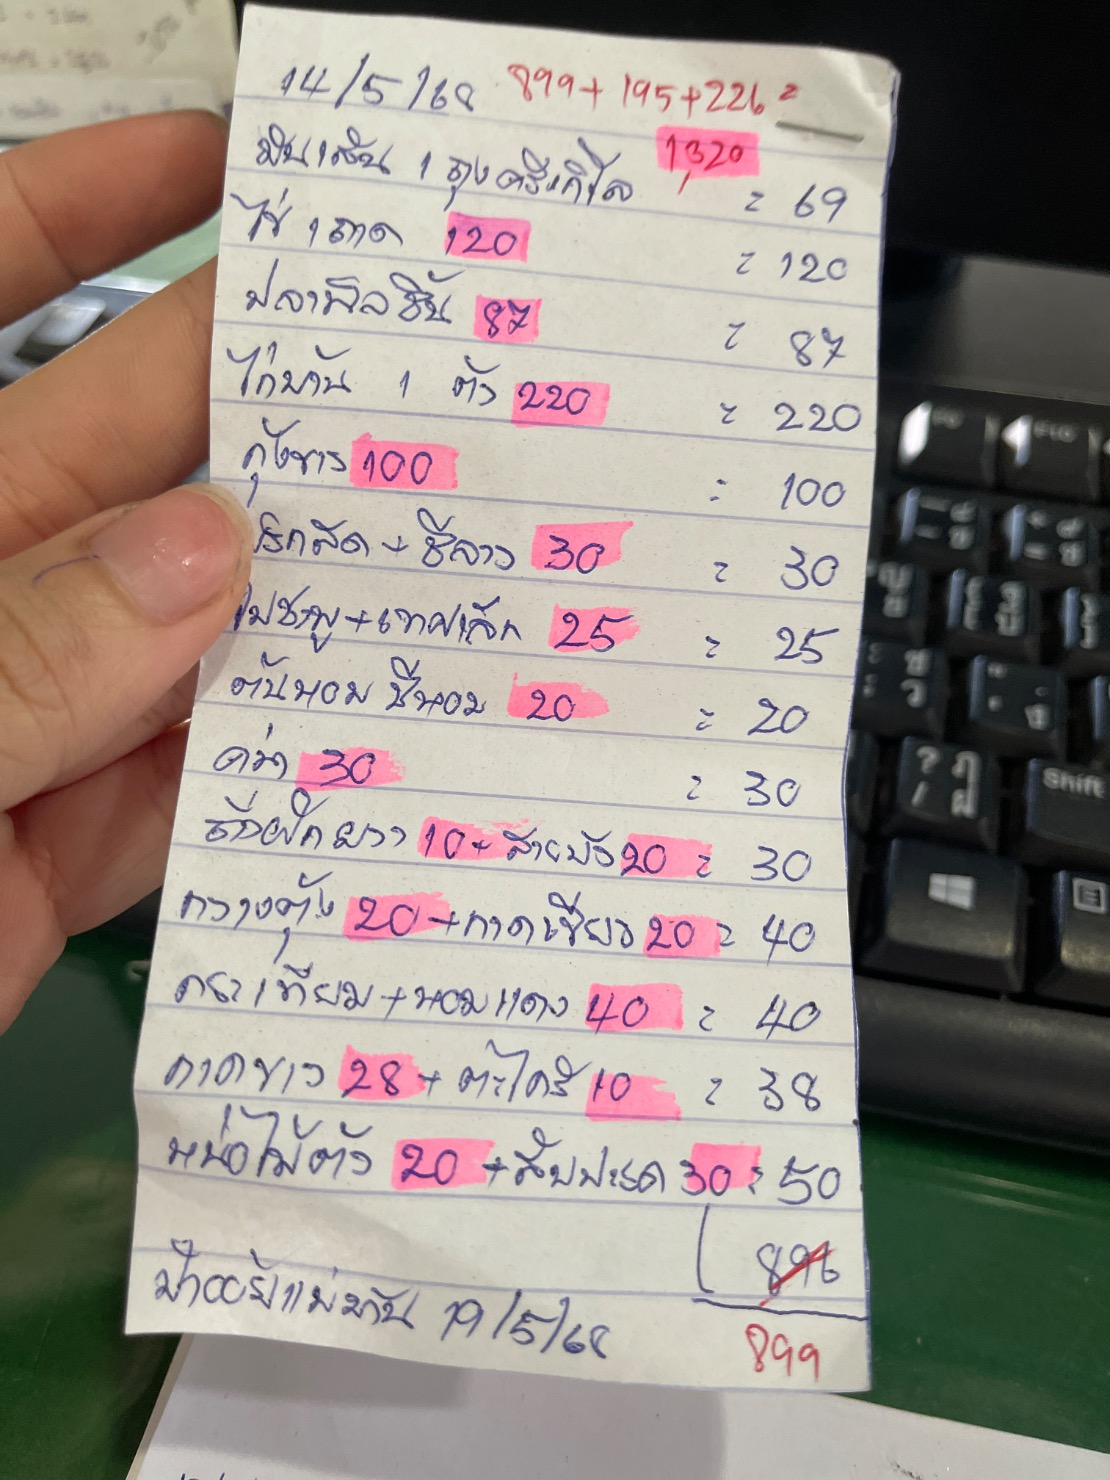 14/5/68 899+195+226 =
1,320
มันเส้น 1 ถุงครึ่งกิโล = 69
ไข่ 1 ถาด 120 = 120
ปลานิลชิ้น 87 = 87
ไก่บ้าน 1 ตัว 220 = 220
กุ้งขาว 100 = 100
พริกสด + ชีลาว 30 = 30
ใบชะพู + เทศเล็ก 25 = 25
ต้นหอม ชีหอม 20 = 20
ข่า 30 = 30
ถั่วฝักยาว 10 + สายบัว 20 = 30
กวางตุ้ง 20 + กาดเขียว 20 = 40
กระเทียม + หอมแดง 40 = 40
กาดขาว 28 + ตะไคร้ 10 = 38
หน่อไม้ 20 + สับปะรด 30 = 50
896
19/5/68
899
Shift